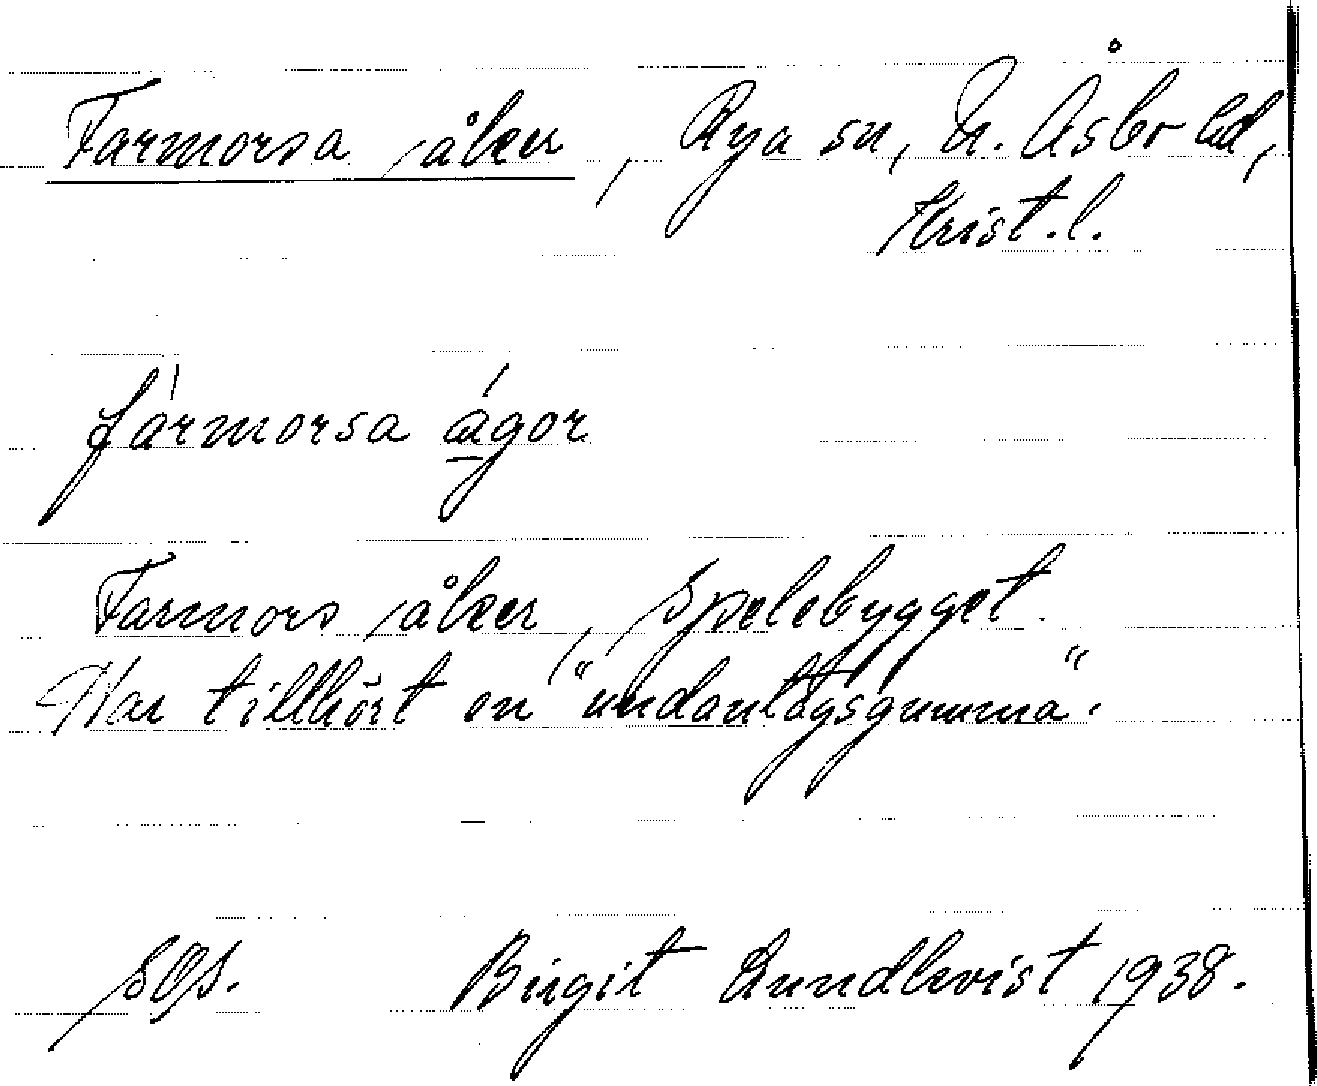 Farmorsa åker, Rya sn, N. Åsbo hd,
Krist. l.
fármorsa ágor
Farmors åker, Spelebygget.
Har tillhört en "undantagsgumma".
Birgit Lundkvist 1938.